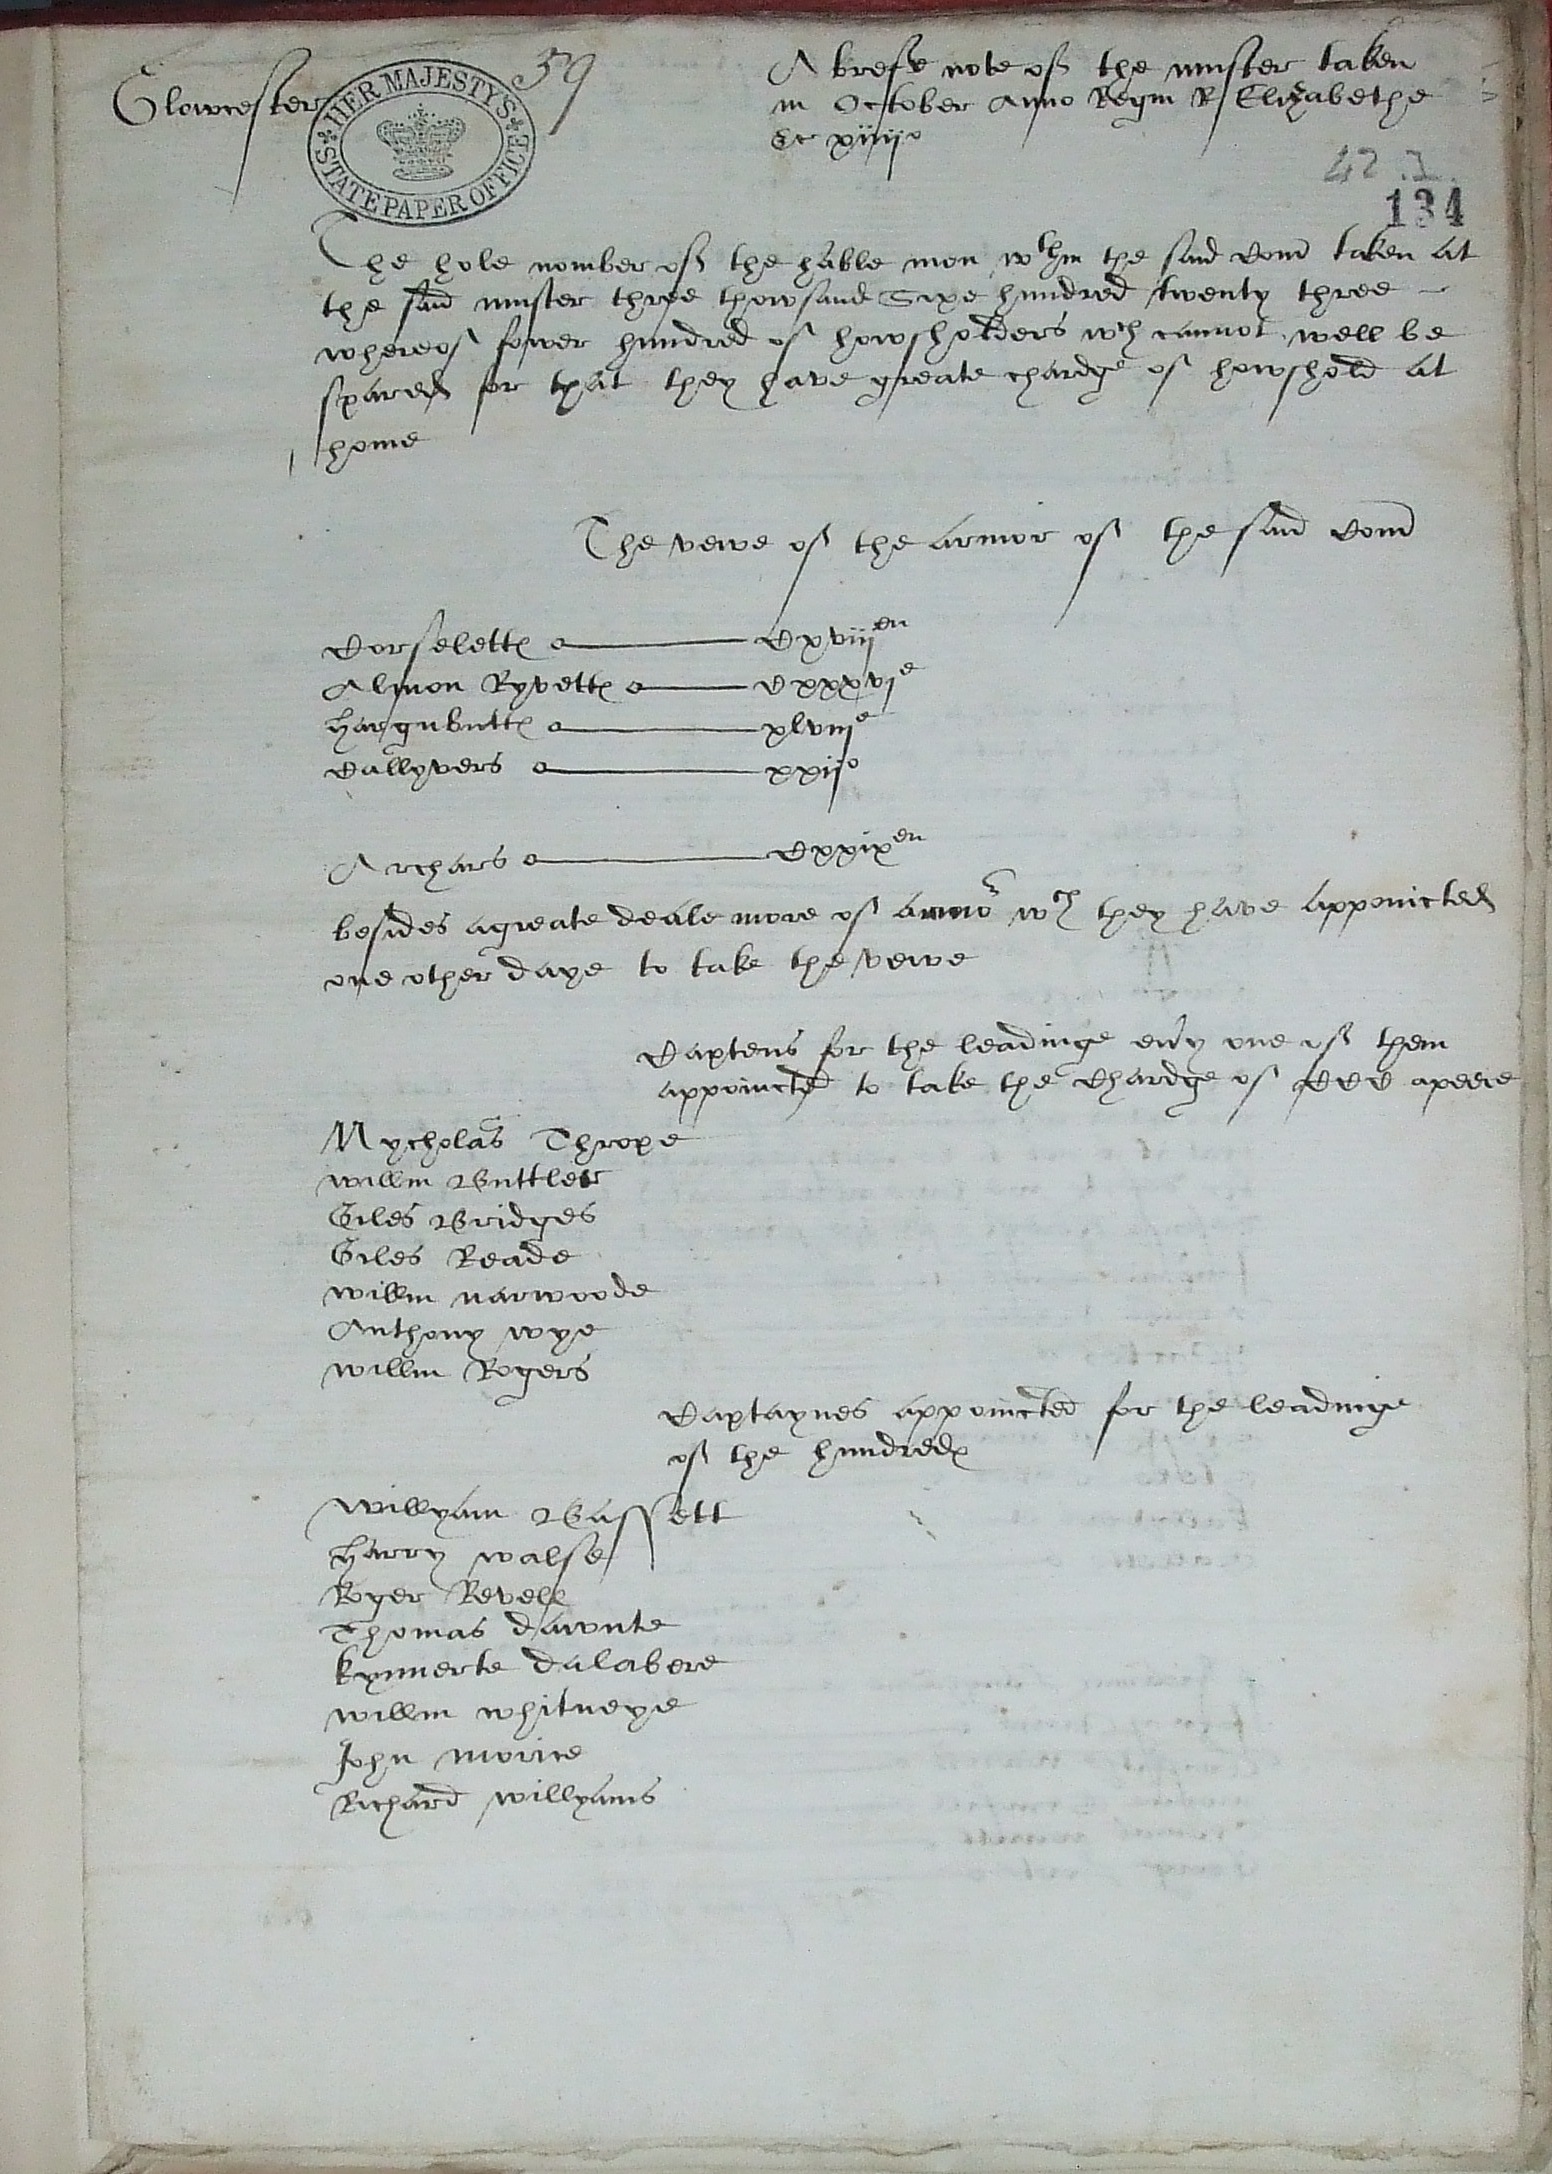 Glowcester
HER MAJESTY'S
STATE PAPER OFFICE
59
A brefe note of the muster taken
in October Anno Regni R Elizabethe
&c xiiijo
42 . I .
134
The hole nomber of the hable men wthin the said Com taken at
the said muster three thowsand Sixe hundred twenty three
whereof fower hundred of howsholders wch cannot well be
spared for that they have greate chardge of howshold at
home
The vewe of the armor of the said Com
Corselette Cxviijen
Almon Ryvette Cxxxvje
Hargubutte xlviije
Callyvers xxijo
Archars Cxxixen
besides a greate deale more of armor wch they have appoincted
one other daye to take the vewe
Captens for the leadinge evry one of them
appoincted to take the Chardge of CCC apeece
Nycholas Thrope
Willm Buttler
Giles Bridges
Giles Reade
Willm Narwoode
Anthony Wye
Willm Rogers
Captaynes appoincted for the leadinge
of the hundredes
Willyam Bassett
Harry Walse
Roger Revell
Thomas dawnte
Kynnerte dalabere
Willm Whitneye
John Morice
Richard Willyams